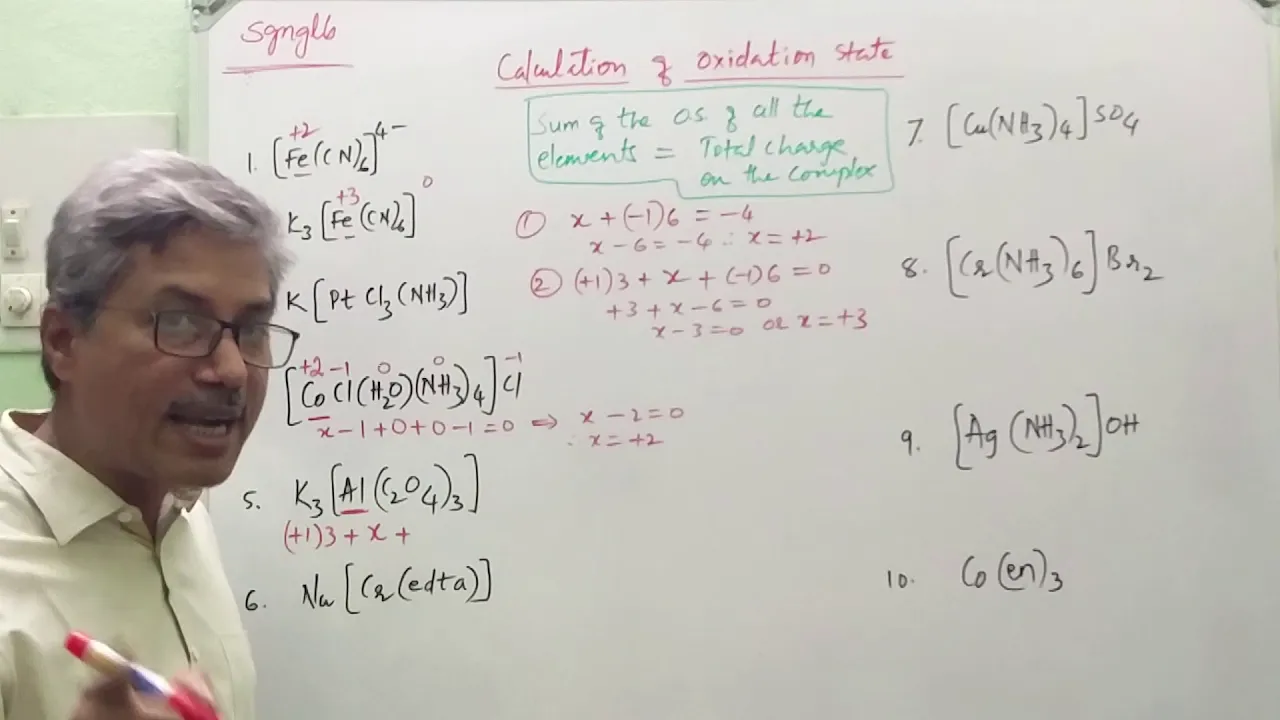 Sgnglb
Calculation of oxidation state
Sum of the O.S. of all the
elements = Total charge
on the complex
+2
1. [Fe(CN)6]4−
+3 0
K3[Fe(CN)6]
K[PtCl3(NH3)]
+2 −1 0 0 −1
[CoCl(H2O)(NH3)4]Cl
x−1+0+0−1=0 ⇒ x−2=0
∴ x=+2
5. K3[Al(C2O4)3]
(+1)3+x+
6. Na[Cr(edta)]
① x+(−1)6=−4
x−6=−4 ∴ x=+2
② (+1)3+x+(−1)6=0
+3+x−6=0
x−3=0 or x=+3
7. [Cu(NH3)4]SO4
8. [Cr(NH3)6]Br2
9. [Ag(NH3)2]OH
10. Co(en)3